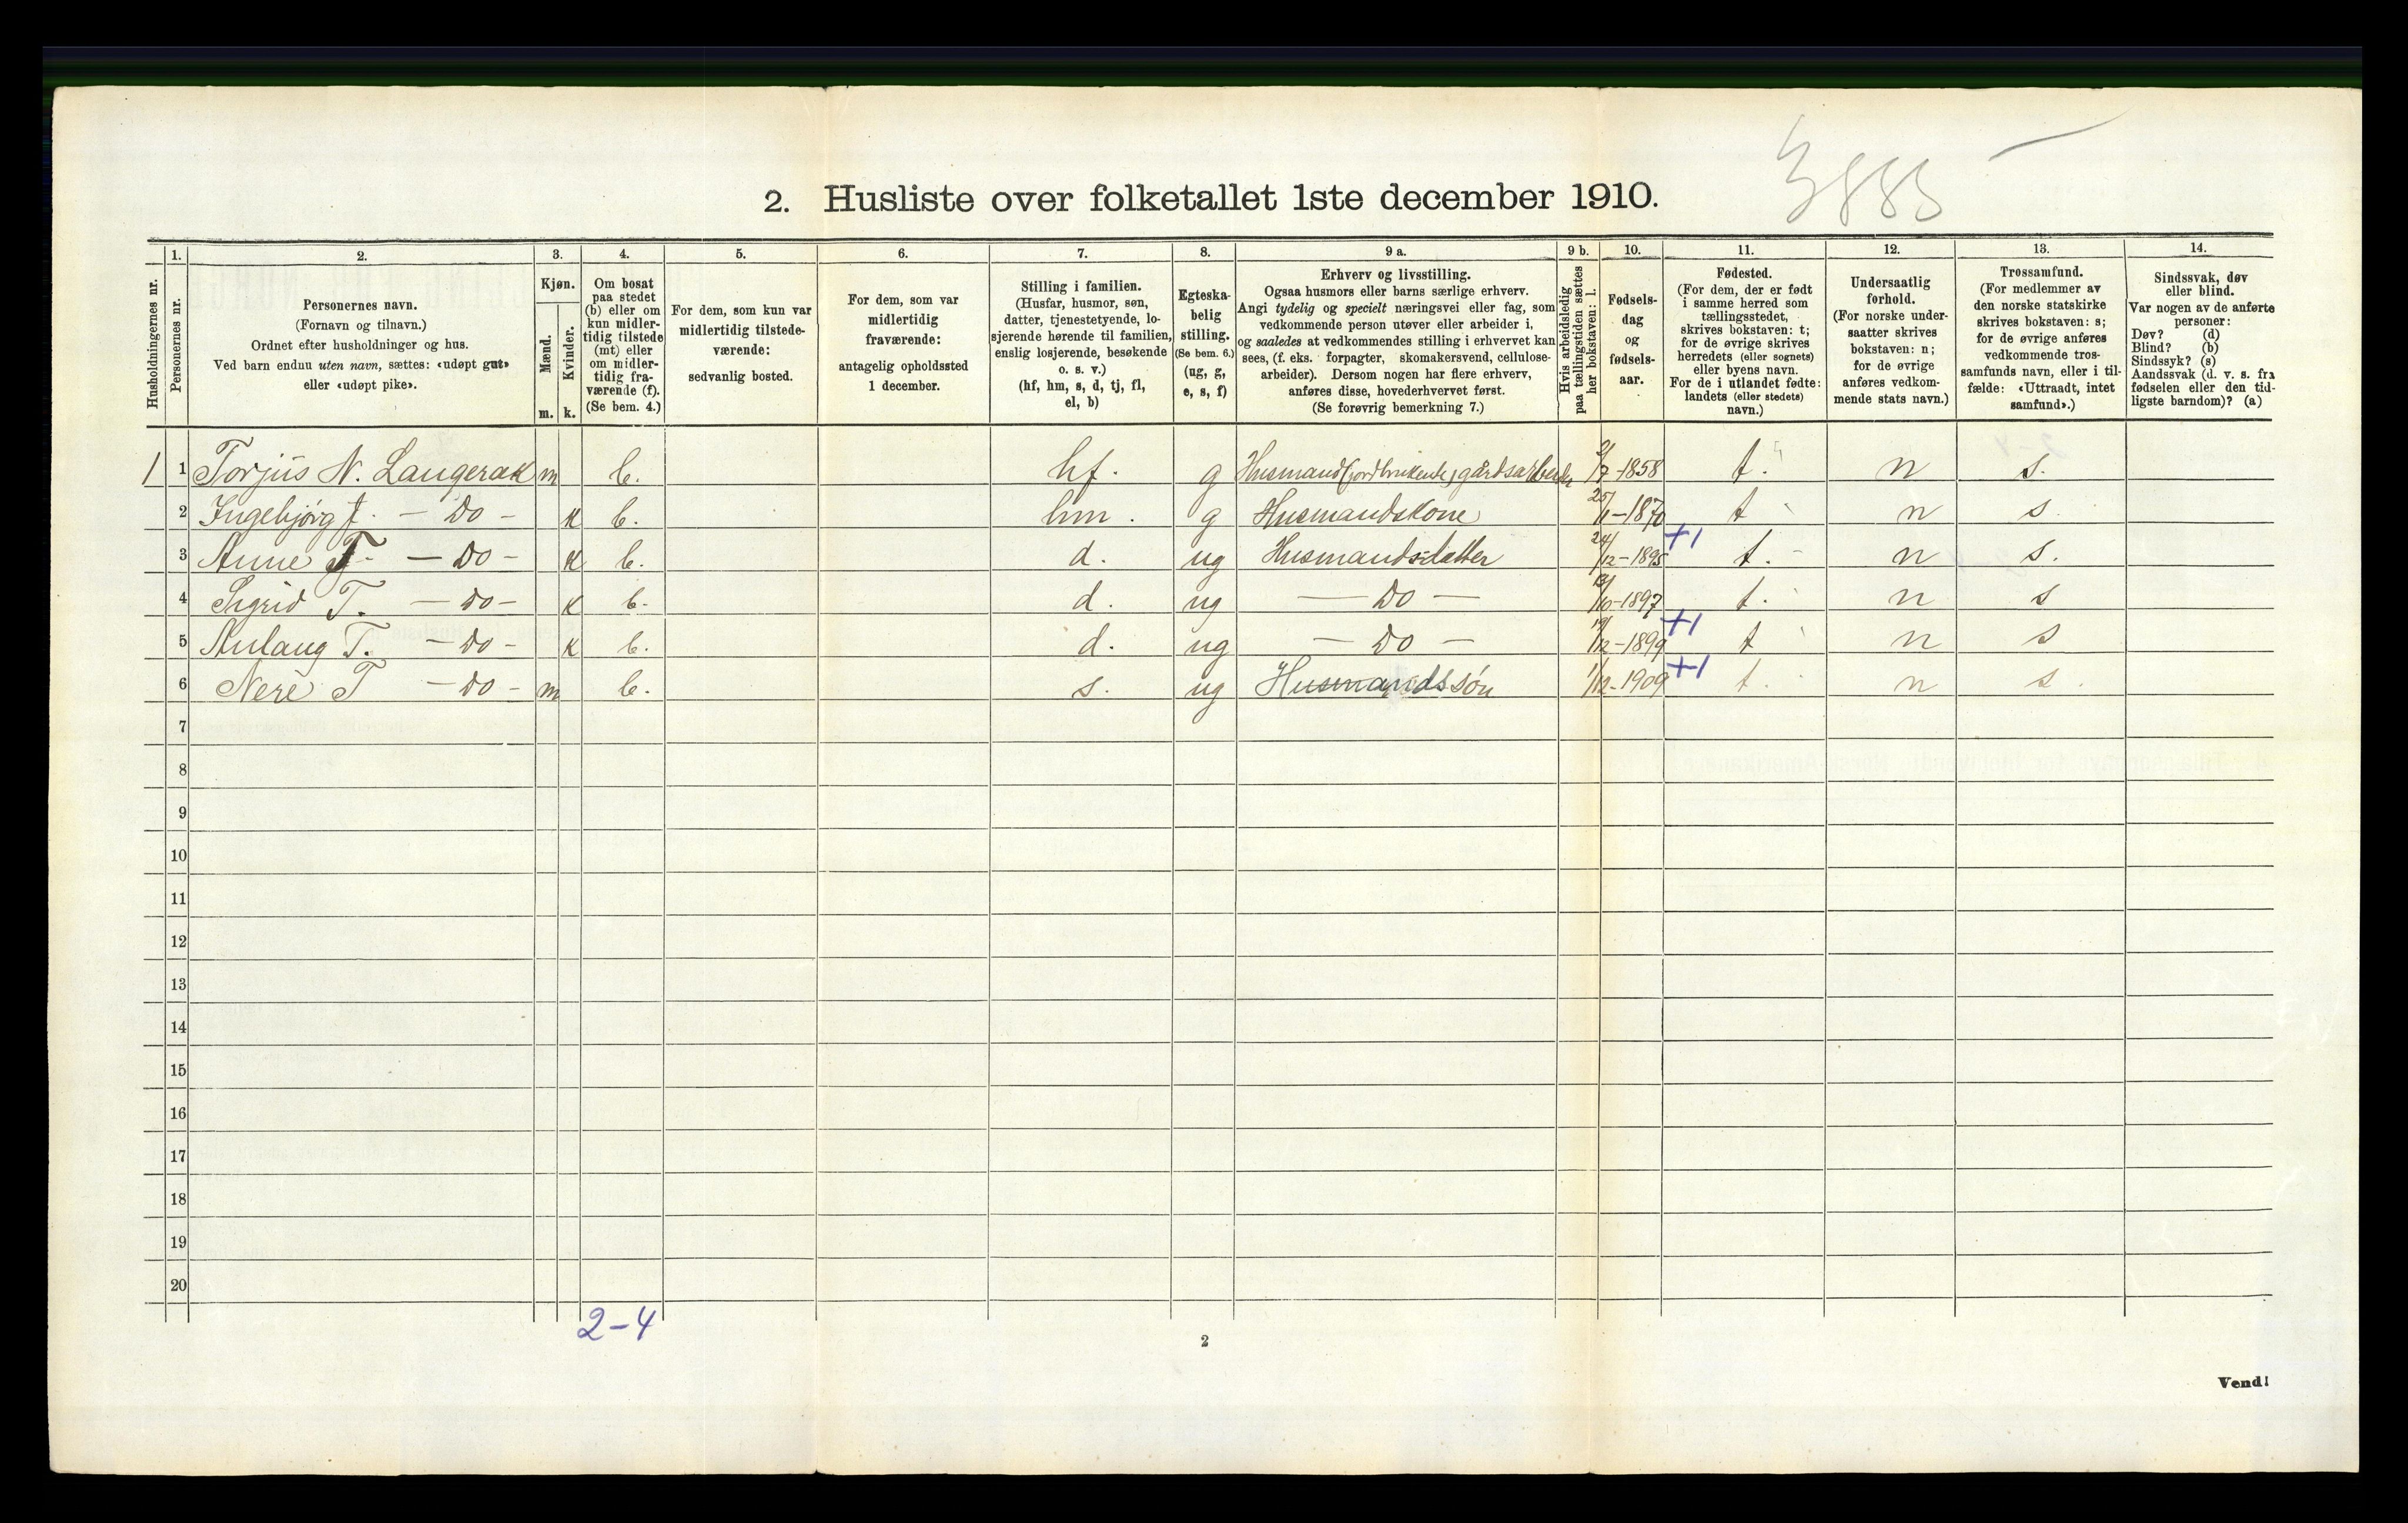 3885 —
2. Husliste over folketallet 1ste december 1910.
Husholdningernes nr.
1.
Personernes nr.
2.
Personernes navn.
(Fornavn og tilnavn.)
Ordnet efter husholdninger og hus.
Ved barn endnu uten navn, sættes: «udøpt gut»
eller «udøpt pike».
3.
Kjøn.
Mænd.
Kvinder.
m. k.
4.
Om bosat
paa stedet
(b) eller om
kun midler-
tidig tilstede
(mt) eller
om midler-
tidig fra-
værende (f).
(Se bem. 4.)
5.
For dem, som kun var
midlertidig tilstede-
værende:
sedvanlig bosted.
6.
For dem, som var
midlertidig
fraværende:
antagelig opholdssted
1 december.
7.
Stilling i familien.
(Husfar, husmor, søn,
datter, tjenestetyende, lo-
sjerende hørende til familien,
enslig losjerende, besøkende
o. s. v.)
(hf, hm, s, d, tj, fl,
el, b)
8.
Egteska-
belig
stilling.
(Se bem. 6.)
(ug, g,
e, s, f)
9 a.
Erhverv og livsstilling.
Ogsaa husmors eller barns særlige erhverv.
Angi tydelig og specielt næringsvei eller fag, som
vedkommende person utøver eller arbeider i,
og saaledes at vedkommendes stilling i erhvervet kan
sees, (f. eks. forpagter, skomakersvend, cellulose-
arbeider). Dersom nogen har flere erhverv,
anføres disse, hovederhvervet først.
(Se forøvrig bemerkning 7.)
9 b.
Hvis arbeidsledig
paa tællingstiden sættes
her bokstaven: l.
10.
Fødsels-
dag
og
fødsels-
aar.
11.
Fødested.
(For dem, der er født
i samme herred som
tællingsstedet,
skrives bokstaven: t;
for de øvrige skrives
herredets (eller sognets)
eller byens navn.
For de i utlandet fødte:
landets (eller stedets)
navn.)
12.
Undersaatlig
forhold.
(For norske under-
saatter skrives
bokstaven: n;
for de øvrige
anføres vedkom-
mende stats navn.)
13.
Trossamfund.
(For medlemmer av
den norske statskirke
skrives bokstaven: s;
for de øvrige anføres
vedkommende tros-
samfunds navn, eller i til-
fælde: «Uttraadt, intet
samfund».)
14.
Sindssvak, døv
eller blind.
Var nogen av de anførte
personer:
Døv? (d)
Blind? (b)
Sindssyk? (s)
Aandssvak (d. v. s. fra
fødselen eller den tid-
ligste barndom)? (a)
1 1 Torjus N. Langerak m b. hf. g Husmand (jordbrukende) gårdsarbeider 2/7-1858 t. n s.
2 Ingebjørg J. — Do — k b. hm. g Husmandskone 25/11-1870 t n s.
3 Anne T. — Do — k b. d. ug Husmandsdatter 24/12-1895 +1 t. n s.
4 Sigrid T. — Do — k b. d. ug — Do — 13/10-1897 t. n s
5 Aulaug T. — Do — k b. d. ug — Do — 19/12-1899 +1 t n s
6 Nere T — Do — m b. s. ug Husmandssøn 1/12-1909 +1 t. n s.
7
8
9
10
11
12
13
14
15
16
17
18
19
20
2-4
2
Vend!